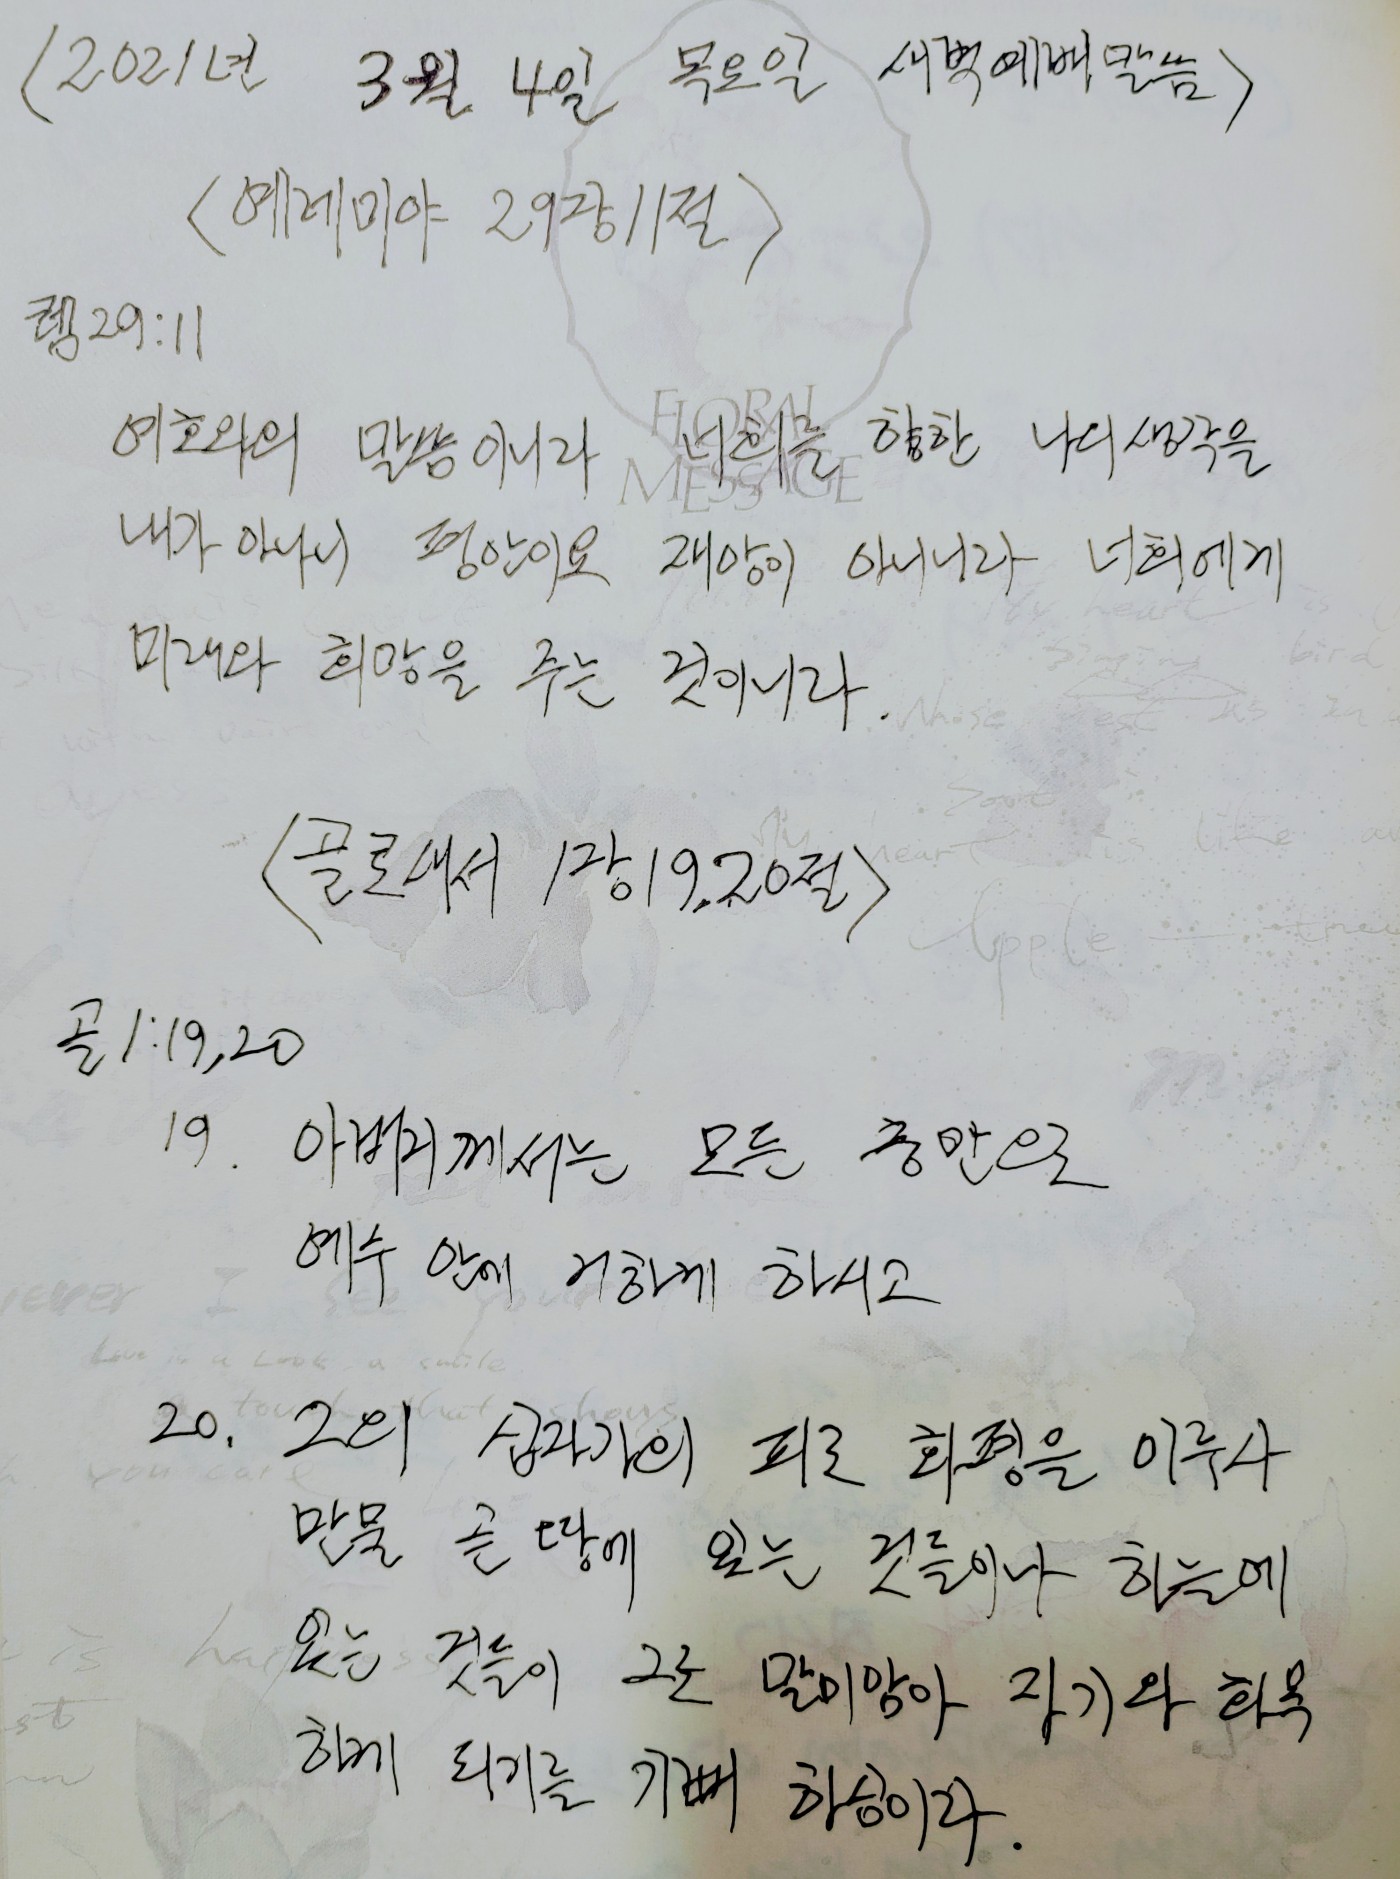 <2021년 3월 4일 목요일 새벽예배말씀>
<예레미야 29장11절>
렘29:11
여호와의 말씀이니라 너희를 향한 나의생각을
내가 아나니 평안이요 재앙이 아니니라 너희에게
미래와 희망을 주는 것이니라.
FLORAL
MESSAGE
<골로새서 1장19,20절>
골1:19,20
19. 아버지께서는 모든 충만으로
예수 안에 거하게 하시고
20. 그의 십자가의 피로 화평을 이루사
만물 곧 땅에 있는 것들이나 하늘에
있는 것들이 그로 말미암아 자기와 화목
하게 되기를 기뻐 하심이라.